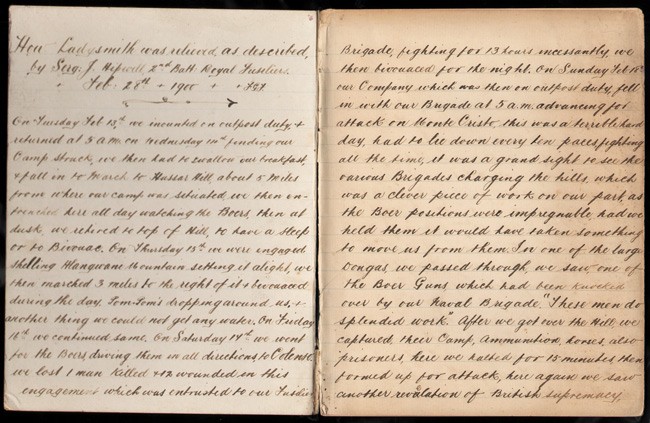 How Ladysmith was relieved, as described,
by Serg: J. Hopwell 2nd Batt Royal Fusiliers.
" Feb: 28th " 1900 " "
On Tuesday Feb 13th we mounted on outpost duty, &
returned at 5 a.m. on Wednesday 14th finding our
Camp struck, we then had to swallow our breakfast,
& fall in to March to Hussar Hill about 5 miles
from where our camp was situated, we then en-
trenched here all day watching the Boers, then at
dusk, we retired to top of Hill, to have a sleep
or to Bivouac. On Thursday 15th we were engaged
shelling Hlangwane Mountain setting it alight, we
then marched 3 miles to the right of it & bivouaced
during the day, Tom-Tom's dropping around us, &
another thing we could not get any water. On Friday
16th we continued same. On Saturday 17th we went
for the Boers driving them in all directions to Colenso
we lost 1 man killed & 12 wounded in this
engagement which was entrusted to our Fusilier
Brigade, fighting for 13 hours incessantly, we
then bivouaced for the night. On Sunday Feb 18th
our Company which was then on outpost duty, fell
in with our Brigade at 5 a.m. advancing for
attack on Monte Cristo, this was a terrible hard
day, had to lie down every ten paces, fighting
all the time, it was a grand sight to see the
various Brigades charging the hills, which
was a clever piece of work on our part, as
the Boer positions were impregnable, had we
held them it would have taken something
to move us from them. In one of the large
Dongas, we passed through, we saw one of
the Boer Guns, which had been knocked
over by our Naval Brigade. "These men do
splendid work". After we got over the Hill, we
captured their Camp, Ammunition, horses, also
prisoners, here we halted for 15 minutes then
formed up for attack, here again we saw
another revalation of British supremacy,